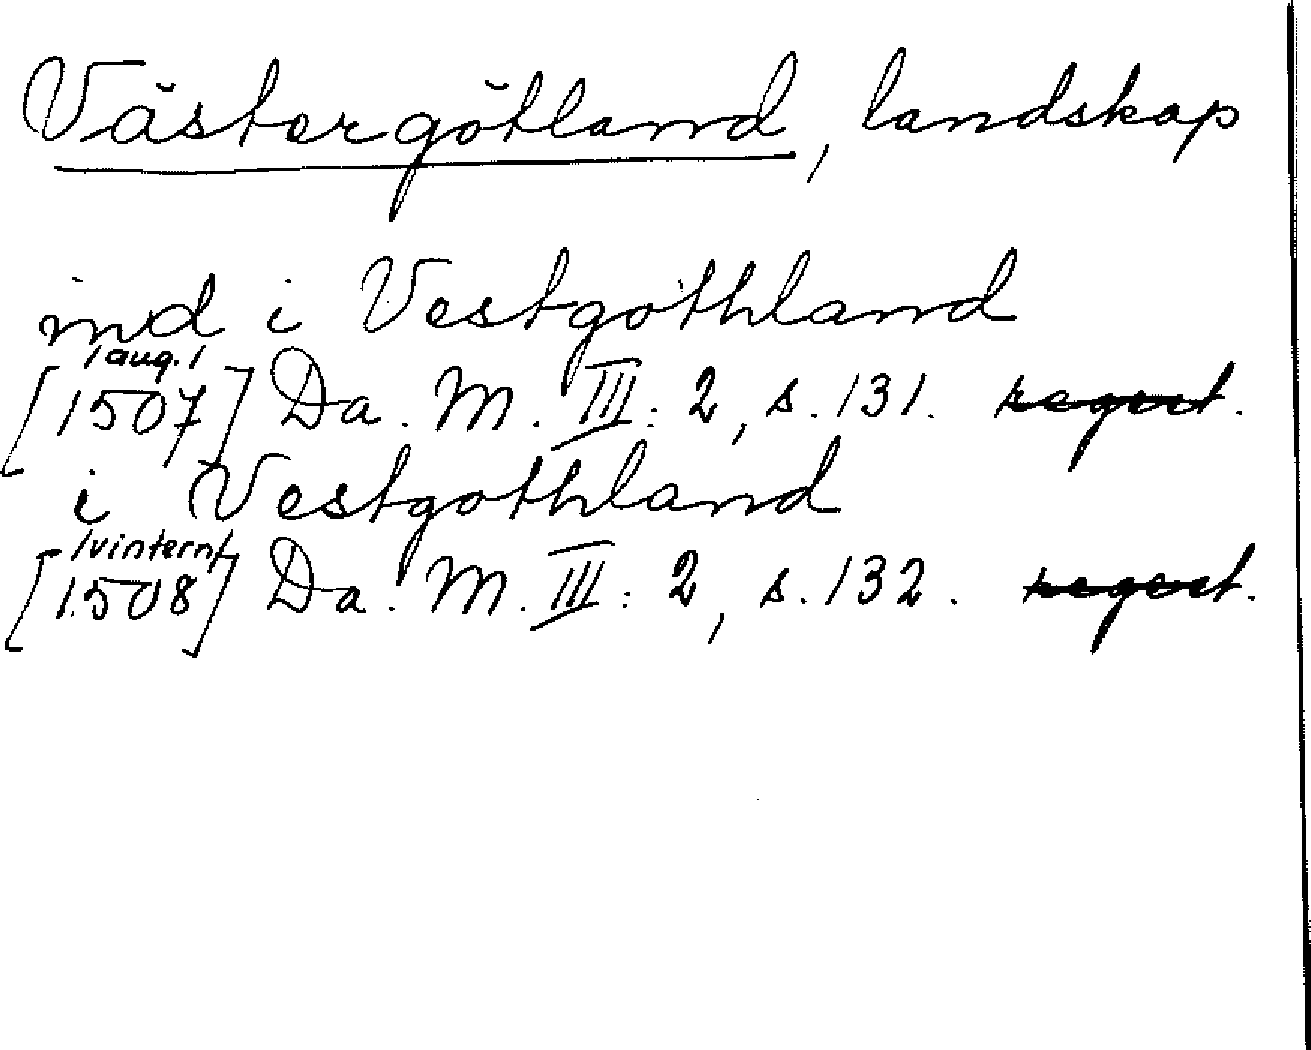 Västergötland, landskap
ind i Vestgothland
/aug./
[1507] Da. M. III: 2, s. 131. regest.
i Vestgothland
/vintern/
[1508] Da. M. III: 2, s. 132. regest.